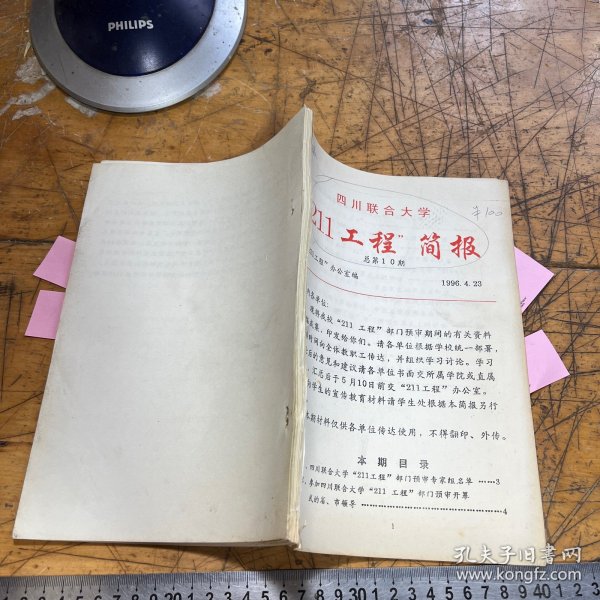 PHILIPS
四川联合大学
211工程”简报
总第10期
211工程”办公室编
1996.4.23
¥100
各单位:
现将我校“211 工程”部门预审期间的有关资料
印发给你们。请各单位根据学校统一部署,
时间向全体教职工传达,并组织学习讨论。学习
后的意见和建议请各单位书面交所属学院或直属
汇总后于5月10日前交“211工程”办公室。
学生的宣传教育材料请学生处根据本简报另行
本期材料仅供各单位传达使用,不得翻印、外传。
本期目录
四川联合大学“211工程”部门预审专家组名单 ……3
参加四川联合大学“211 工程”部门预审开幕
式的省、市领导 ……………………………4
1
孔夫子旧书网
www.kongfz.com
0 1 2 3 4 5 6 7 8 9